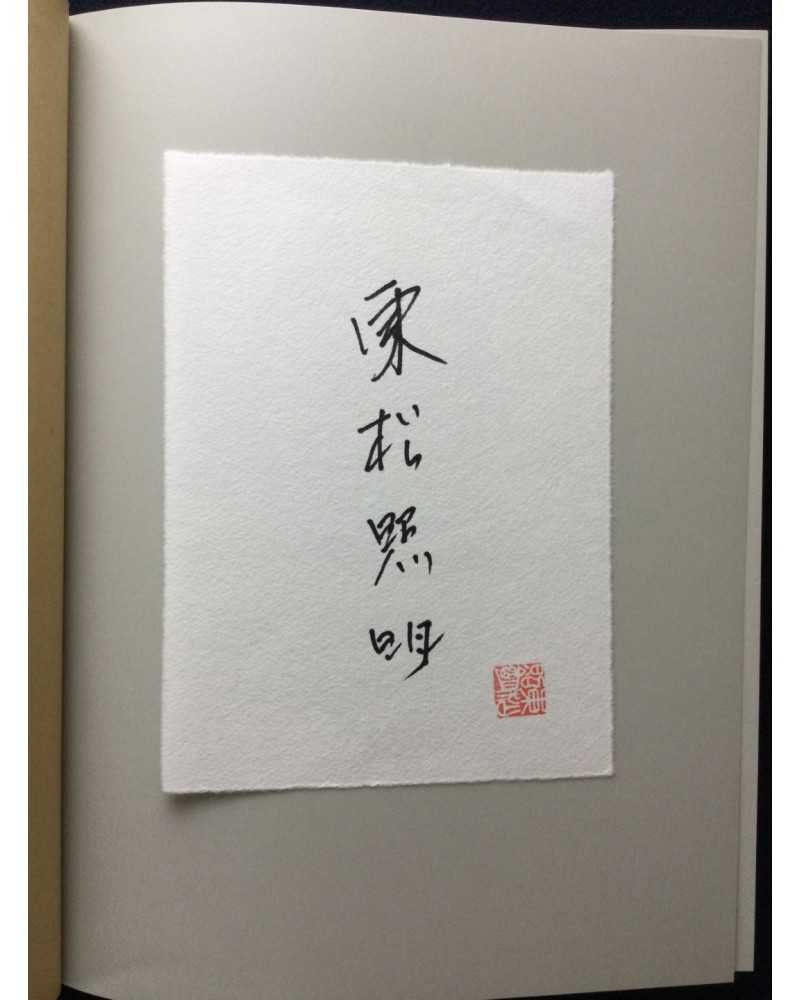 東松照明